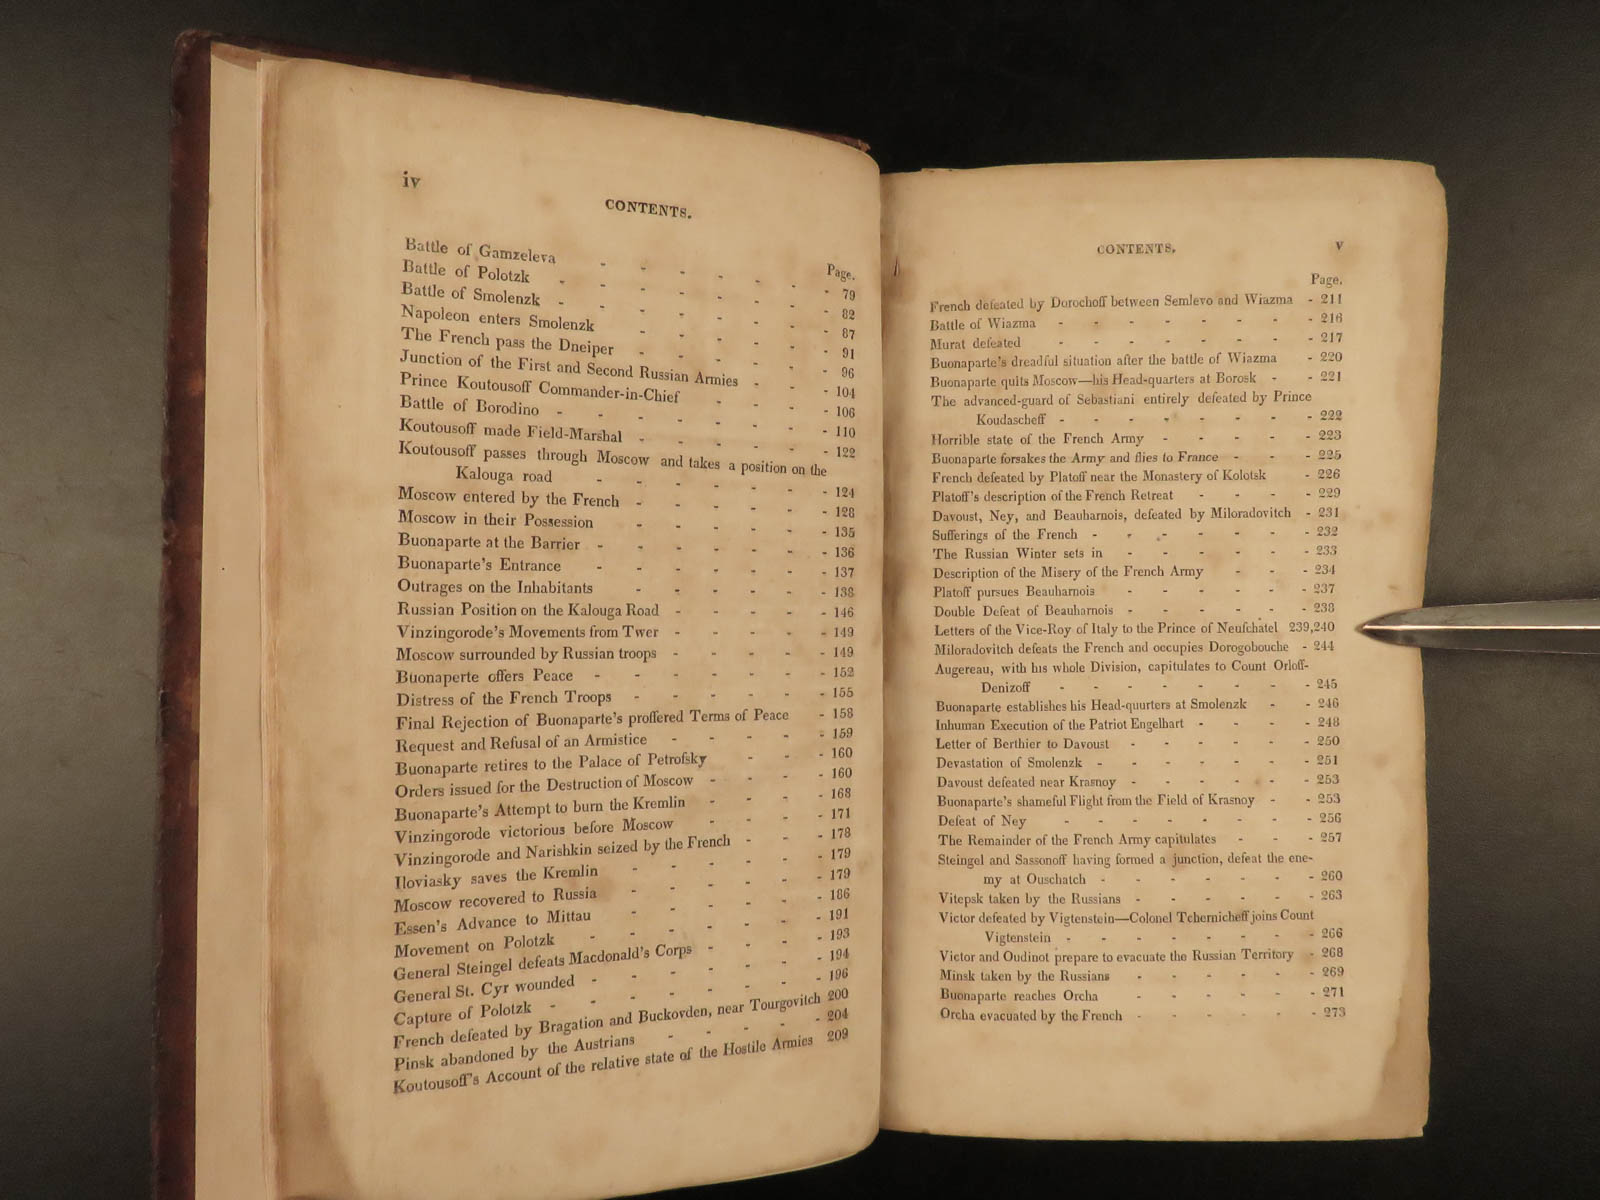 iv
CONTENTS.
Page.
Battle of Gamzeleva - - - - - - - 79
Battle of Polotzk - - - - - - - 82
Battle of Smolenzk - - - - - - - 87
Napoleon enters Smolenzk - - - - - - 91
The French pass the Dneiper - - - - - - 96
Junction of the First and Second Russian Armies - - - 104
Prince Koutousoff Commander-in-Chief - - - - 106
Battle of Borodino - - - - - - - 110
Koutousoff made Field-Marshal - - - - - - 122
Koutousoff passes through Moscow and takes a position on the
Kalouga road - - - - - - - 124
Moscow entered by the French - - - - - - 128
Moscow in their Possession - - - - - - 135
Buonaparte at the Barrier - - - - - - - 136
Buonaparte's Entrance - - - - - - - 137
Outrages on the Inhabitants - - - - - - 138
Russian Position on the Kalouga Road - - - - - 146
Vinzingorode's Movements from Twer - - - - - 149
Moscow surrounded by Russian troops - - - - - 149
Buonaperte offers Peace - - - - - - - 152
Distress of the French Troops - - - - - - 155
Final Rejection of Buonaparte's proffered Terms of Peace - 158
Request and Refusal of an Armistice - - - - - 159
Buonaparte retires to the Palace of Petrofsky - - - 160
Orders issued for the Destruction of Moscow - - - - 160
Buonaparte's Attempt to burn the Kremlin - - - - 168
Vinzingorode victorious before Moscow - - - - 171
Vinzingorode and Narishkin seized by the French - - - 178
Iloviasky saves the Kremlin - - - - - - 179
Moscow recovered to Russia - - - - - - 179
Essen's Advance to Mittau - - - - - - 186
Movement on Polotzk - - - - - - - 191
General Steingel defeats Macdonald's Corps - - - - 193
General St. Cyr wounded - - - - - - - 194
Capture of Polotzk - - - - - - - - 196
French defeated by Bragation and Buckovden, near Tourgovitch 200
Pinsk abandoned by the Austrians - - - - - 204
Koutousoff's Account of the relative state of the Hostile Armies 209
CONTENTS. v
Page.
French defeated by Dorochoff between Semlevo and Wiazma - 211
Battle of Wiazma - - - - - - - - 216
Murat defeated - - - - - - - - 217
Buonaparte's dreadful situation after the battle of Wiazma - 220
Buonaparte quits Moscow—his Head-quarters at Borosk - - 221
The advanced-guard of Sebastiani entirely defeated by Prince
Koudascheff - - - - - - - - 222
Horrible state of the French Army - - - - - 223
Buonaparte forsakes the Army and flies to France - - - 225
French defeated by Platoff near the Monastery of Kolotsk - 226
Platoff's description of the French Retreat - - - - 229
Davoust, Ney, and Beauharnois, defeated by Miloradovitch - 231
Sufferings of the French - - - - - - - 232
The Russian Winter sets in - - - - - - 233
Description of the Misery of the French Army - - - 234
Platoff pursues Beauharnois - - - - - - 237
Double Defeat of Beauharnois - - - - - - 238
Letters of the Vice-Roy of Italy to the Prince of Neufchatel 239,240
Miloradovitch defeats the French and occupies Dorogobouche - 244
Augereau, with his whole Division, capitulates to Count Orloff-
Denizoff - - - - - - - - 245
Buonaparte establishes his Head-quurters at Smolenzk - - 246
Inhuman Execution of the Patriot Engelhart - - - - 248
Letter of Berthier to Davoust - - - - - - 250
Devastation of Smolenzk - - - - - - - 251
Davoust defeated near Krasnoy - - - - - - 253
Buonaparte's shameful Flight from the Field of Krasnoy - - 253
Defeat of Ney - - - - - - - - 256
The Remainder of the French Army capitulates - - - 257
Steingel and Sassonoff having formed a junction, defeat the ene-
my at Ouschatch - - - - - - - 260
Vitepsk taken by the Russians - - - - - - 263
Victor defeated by Vigtenstein—Colonel Tchernicheff joins Count
Vigtenstein - - - - - - - - 266
Victor and Oudinot prepare to evacuate the Russian Territory - 268
Minsk taken by the Russians - - - - - - 269
Buonaparte reaches Orcha - - - - - - 271
Orcha evacuated by the French - - - - - - 273